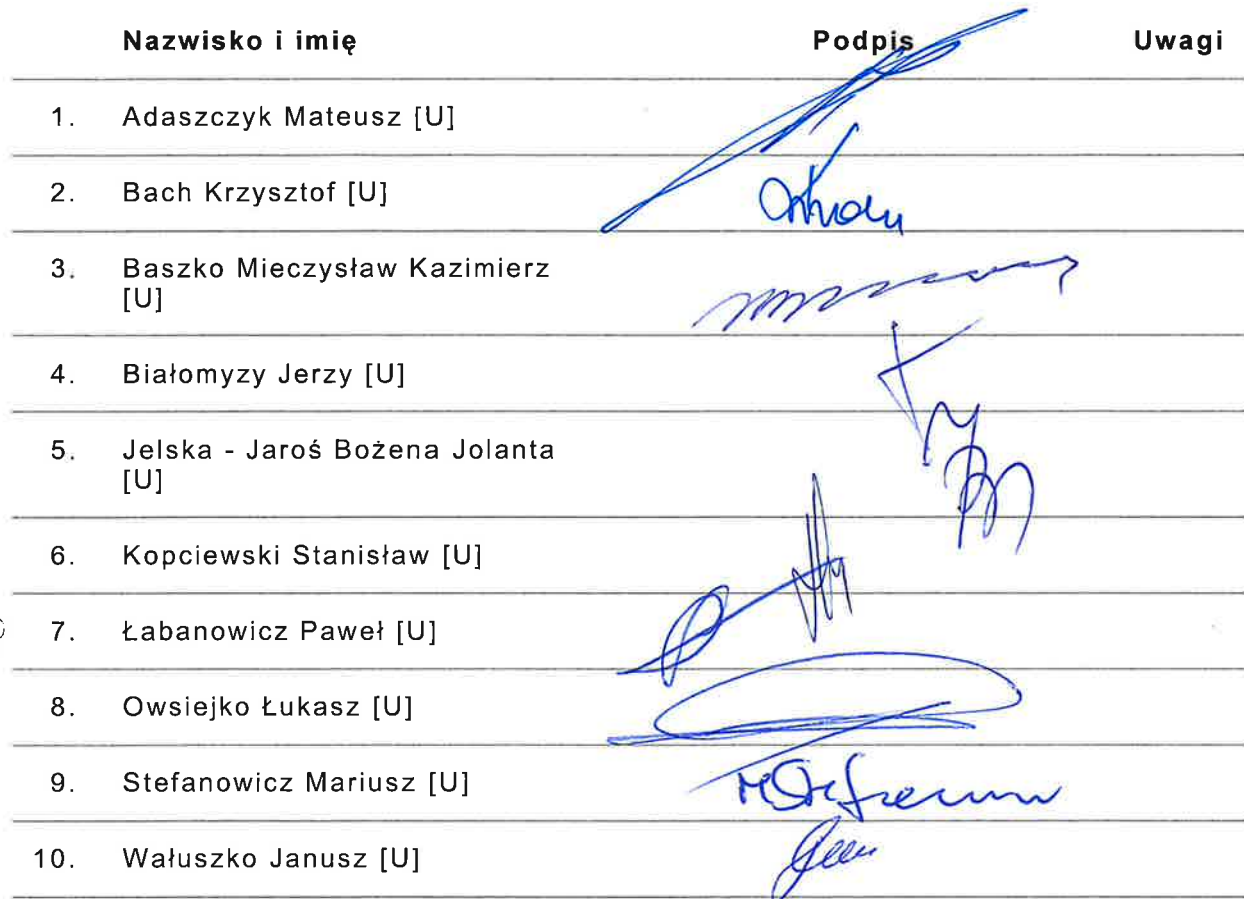 Nazwisko i imię Podpis Uwagi
1. Adaszczyk Mateusz [U]
2. Bach Krzysztof [U]
3. Baszko Mieczysław Kazimierz
[U]
4. Białomyzy Jerzy [U]
5. Jelska - Jaroś Bożena Jolanta
[U]
6. Kopciewski Stanisław [U]
7. Łabanowicz Paweł [U]
8. Owsiejko Łukasz [U]
9. Stefanowicz Mariusz [U]
10. Wałuszko Janusz [U]